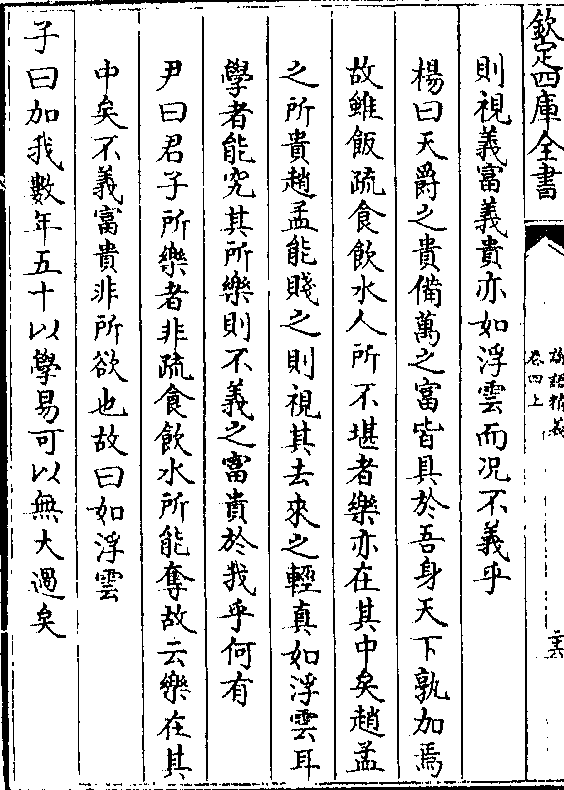 欽定四庫全書
論語精義
卷四上
則視義富義貴亦如浮雲而况不義乎
楊曰天爵之貴備萬之富皆具於吾身天下孰加焉
故雖飯疏食飲水人所不堪者樂亦在其中矣趙孟
之所貴趙孟能賤之則視其去來之輕真如浮雲耳
學者能究其所樂則不義之富貴於我乎何有
尹曰君子所樂者非疏食飲水所能奪故云樂在其
中矣不義富貴非所欲也故曰如浮雲
子曰加我數年五十以學易可以無大過矣